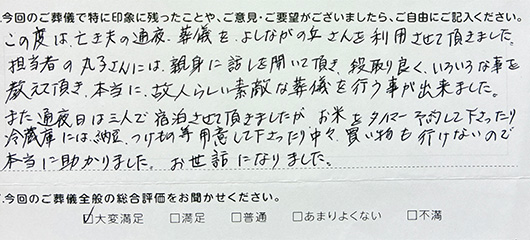 .今回のご葬儀で特に印象に残ったことや、ご意見・ご要望がございましたら、ご自由にご記入ください。
この度は、亡き夫の通夜、葬儀を、よしながの丘さんを利用させて頂きました。
担当者の丸子さんには、親身に話しを聞いて頂き、段取り良く、いろいろな事を
教えて頂き、本当に、故人らしい素敵な葬儀を行う事が出来ました。
また通夜日は三人で宿泊させて頂きましたが お米をタイマー予約して下さったり
冷蔵庫には、納豆、つけもの等用意して下さったり中々、買い物も行けないので
本当に助かりました。 お世話になりました。
.今回のご葬儀全般の総合評価をお聞かせください。
☑大変満足 □満足 □普通 □あまりよくない □不満